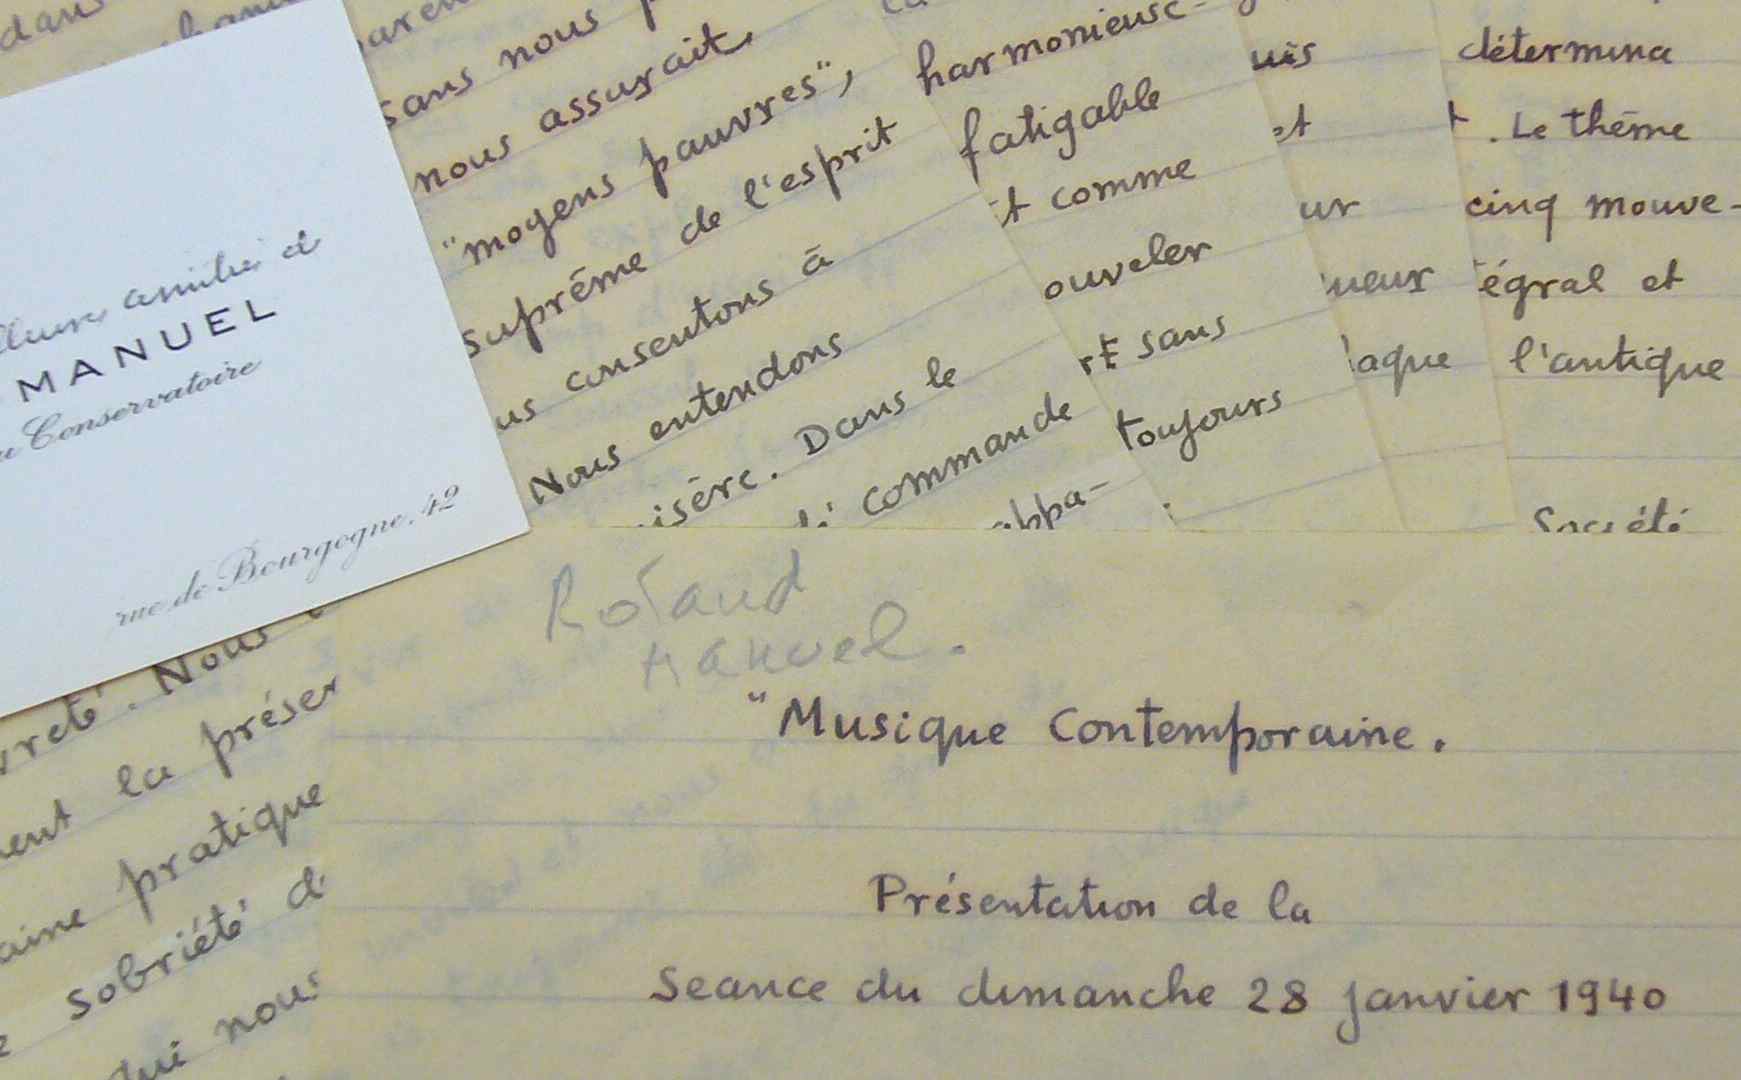 dans
sans nous
nous assurait,
"moyens pauvres",
suprême de l'esprit
us consentons à
Nous entendons
isère. Dans le
commande
appa-
harmonieuse-
fatigable
t comme
ouveler
rt sans
toujours
uis
et
ur
ueur
laque
détermina
t. Le thème
cinq mouve-
égral et
l'antique
Société
amitié
MANUEL
Conservatoire
rue de Bourgogne. 42
vreté. Nous
ent la préser
aine pratique
sobriété d
qui nous
Roland
Manuel.
"Musique Contemporaine.
Présentation de la
Seance du dimanche 28 janvier 1940